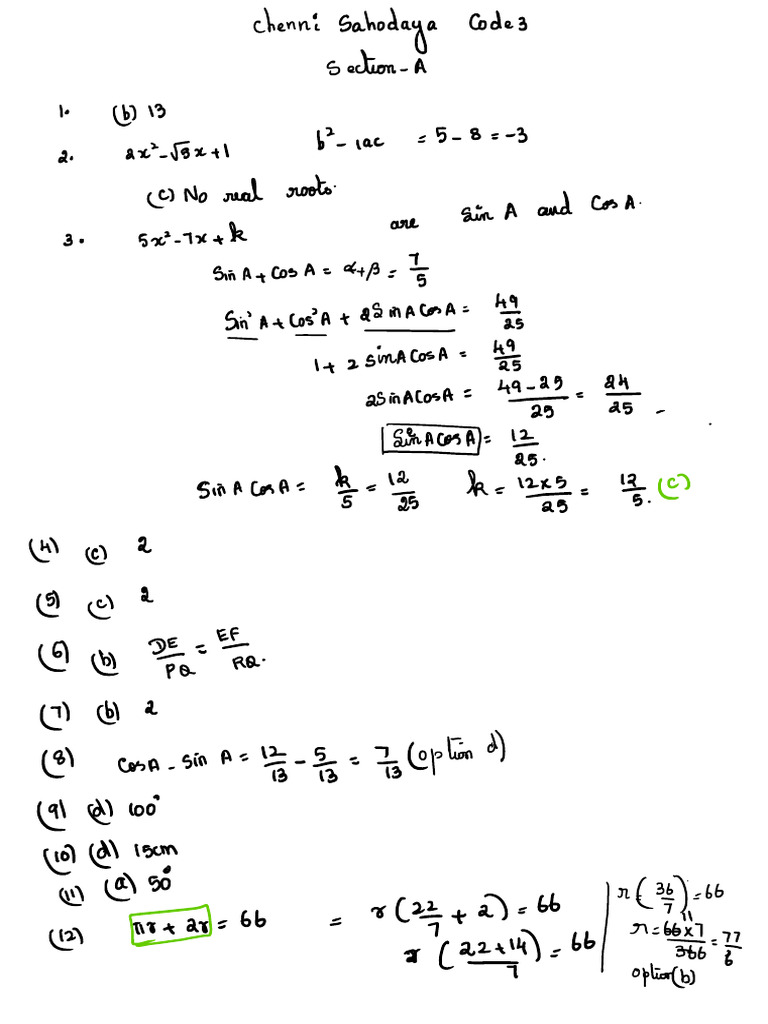 Chenni Sahodaya Code 3
Section-A
1. (b) 13
2. 2x² - √5x + 1 b² - 4ac = 5 - 8 = -3
(c) No real roots.
3. 5x² - 7x + k are Sin A and Cos A.
Sin A + Cos A = α+β = 7/5
Sin²A + Cos²A + 2 Sin A Cos A = 49/25
1 + 2 sin A Cos A = 49/25
2 Sin A Cos A = 49-25/25 = 24/25
Sin A Cos A = 12/25.
Sin A Cos A = k/5 = 12/25 k = 12×5/25 = 12/5. (c)
(4) (c) 2
(5) (c) 2
(6) (b) DE/PQ = EF/RQ.
(7) (b) 2
(8) Cos A - Sin A = 12/13 - 5/13 = 7/13 (option d)
(9) (d) 100°
(10) (d) 15cm
(11) (a) 50°
(12) πr + 2r = 66 = r(22/7 + 2) = 66
r(22+14/7) = 66
r(36/7) = 66
r = 66×7/36 = 77/6
option(b)